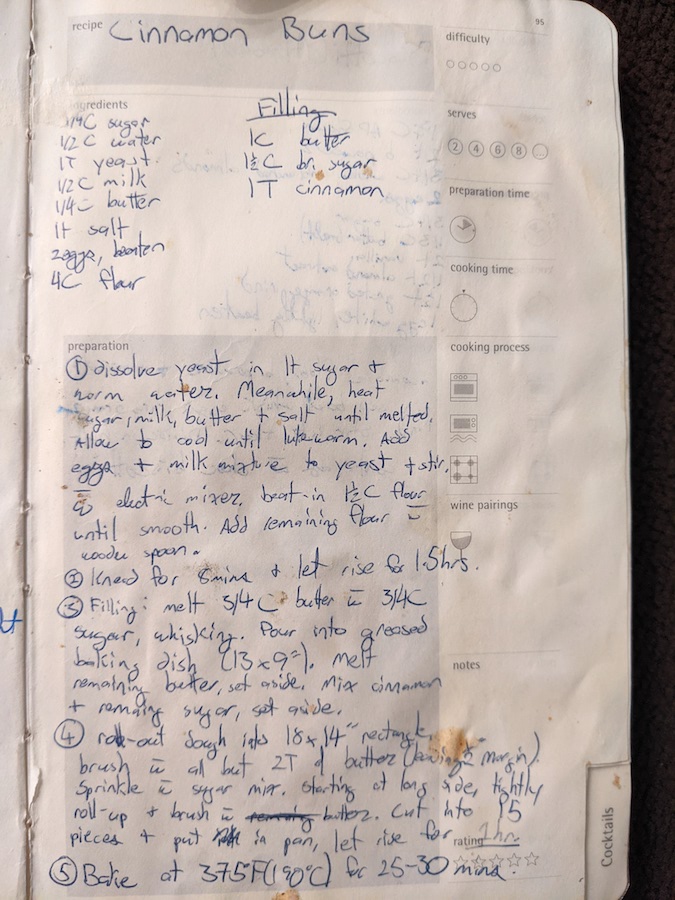 95
recipe Cinnamon Buns
difficulty
ingredients
3/4C sugar
1/2 C water
1T yeast
1/2C milk
1/4C butter
1t salt
2 eggs, beaten
4C flour
Filling
1C butter
1½ C br. sugar
1T cinnamon
serves
2 4 6 8 ...
preparation time
cooking time
cooking process
wine pairings
notes
rating
Cocktails
preparation
① dissolve yeast in 1t sugar +
warm water. Meanwhile, heat
sugar, milk, butter + salt until melted.
Allow to cool until lukewarm. Add
eggs + milk mixture to yeast + stir.
w̄ electric mixer, beat-in 1½ C flour
until smooth. Add remaining flour w̄
wooden spoon.
② Knead for 8mins + let rise for 1.5hrs.
③ Filling: melt 3/4 C butter w̄ 3/4C
sugar, whisking. Pour into greased
baking dish (13x9"). Melt
remaining butter, set aside. Mix cinnamon
+ remaing sugar, set aside.
④ roll-out dough into 18x14" rectangle.
brush w̄ all but 2T of butter (leaving ½" margin).
Sprinkle w̄ sugar mix. Starting at long side, tightly
roll-up + brush w̄ remaining butter. Cut into 15
pieces + put in pan, let rise for 1hr.
⑤ Bake at 375°F (190°C) for 25-30 mins.